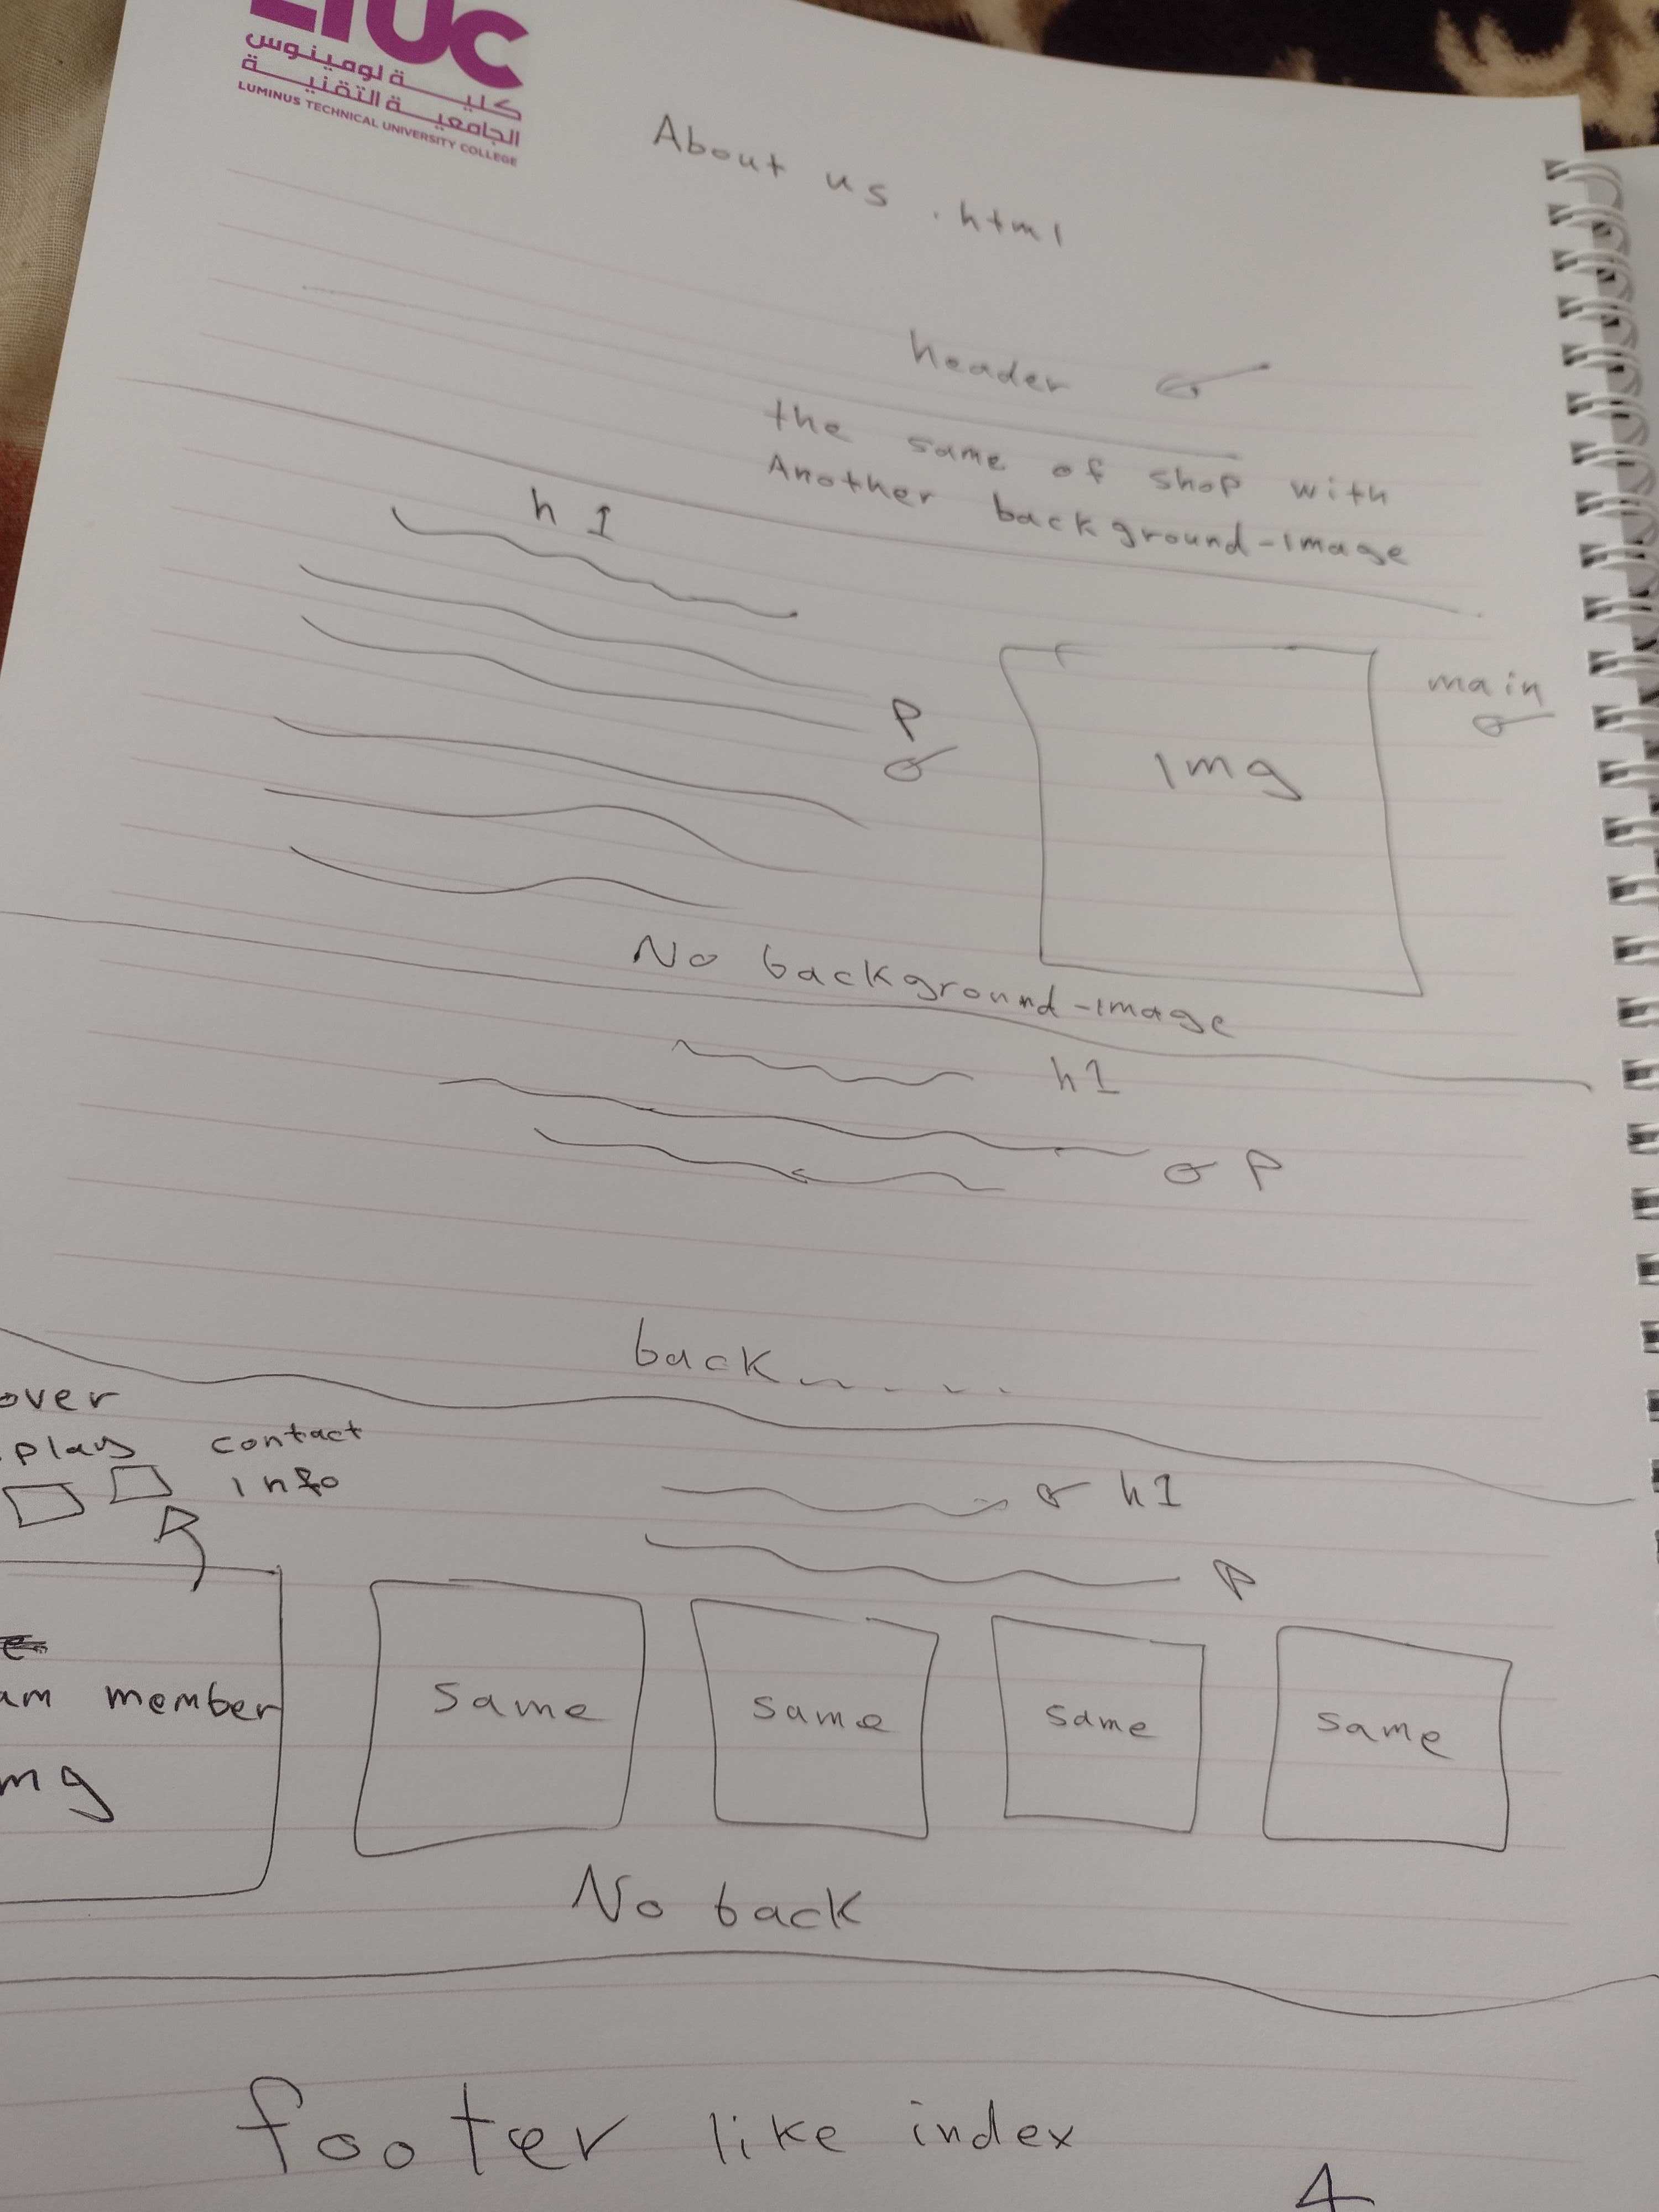 LTUC
كلية لومينوس
الجامعية التقنية
LUMINUS TECHNICAL UNIVERSITY COLLEGE
About us .html
header
the same of shop with
Another background-image
h1
P
img
main
No background-image
h1
P
back
over
play contact
info
h1
P
am member
mg
same
same
same
same
No back
footer like index
4